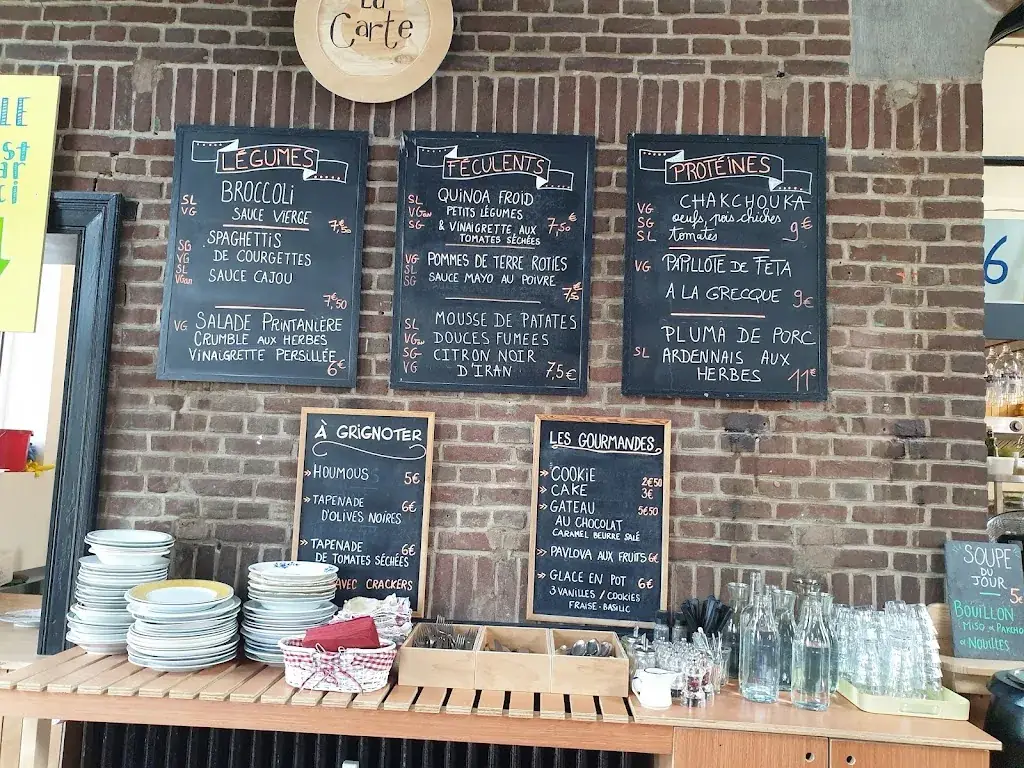 La
Carte
LE
LÉGUMES
BROCCOLi
SL
VG
SAUCE VIERGE
7,50€
SG
VG
SL
VGan
SPAGHETTiS
DE COURGETTES
SAUCE CAJOU
7,50€
VG
SALADE PRiNTANiÈRE
CRUMBLE AUX HERBES
ViNAiGRETTE PERSiLLÉE
6€
FÉCULENTS
SL
VGan
SG
QUiNOA FROiD
PETiTS LÉGUMES
& ViNAiGRETTE AUX
TOMATES SÉCHÉES
7,50€
VG
SL
SG
POMMES DE TERRE ROTiES
SAUCE MAYO AU POiVRE
7,5€
SL
VGan
SG
VG
MOUSSE DE PATATES
DOUCES FUMEES
CiTRON NOiR
D'iRAN
7,5€
PROTÉiNES
VG
SG
SL
CHAKCHOUKA
oeufs, pois chiches
tomates
9€
VG
PAPiLLOTE DE FETA
A LA GRECQUE 9€
SL
PLUMA DE PORC
ARDENNAiS AUX
HERBES
11€
À GRiGNOTER
» HOUMOUS 5€
» TAPENADE
D'OLiVES NOiRES
6€
» TAPENADE
DE TOMATES SÉCHÉES
6€
AVEC CRACKERS
LES GOURMANDES
» COOKiE 2€50
» CAKE 3€
» GATEAU 5€50
AU CHOCOLAT
CARAMEL BEURRE SALÉ
» PAVLOVA AUX FRUiTS 6€
» GLACE EN POT 6€
3 VANiLLES / COOKiES
FRAiSE - BASiLiC
6
SOUPE
DU
JOUR
5€
BOUiLLON
MiSO
NOUiLLES